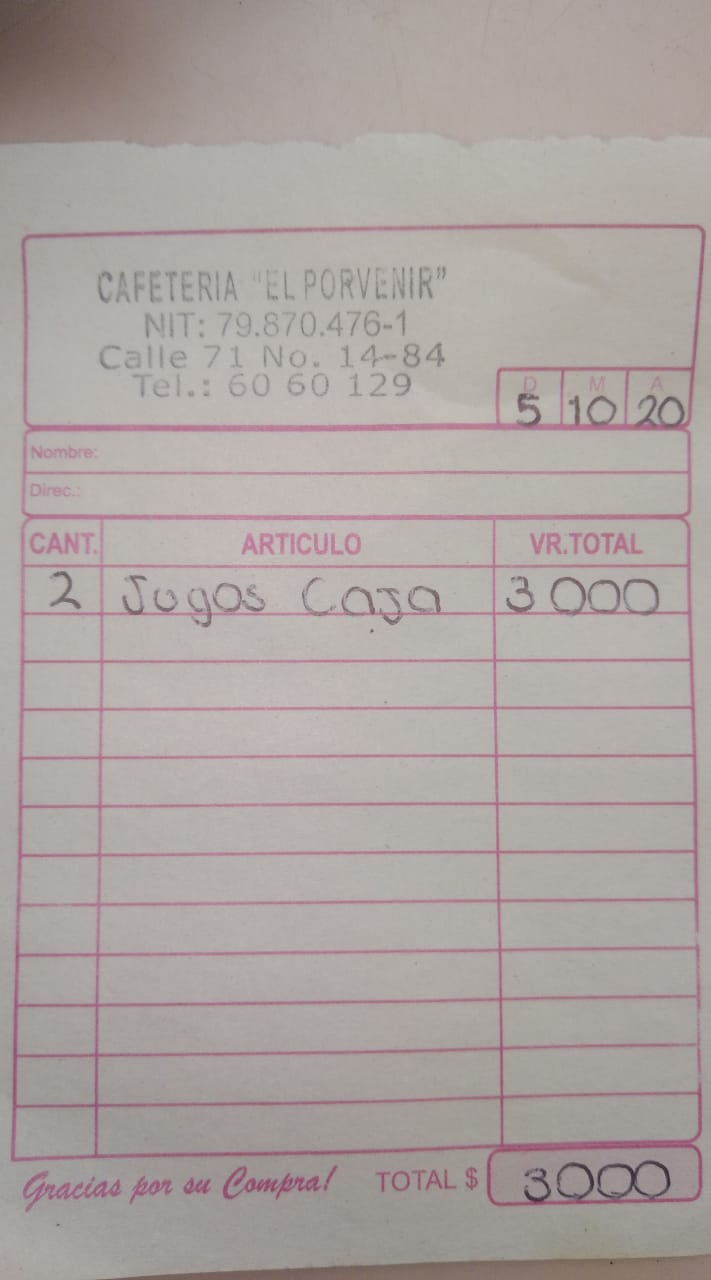 CAFETERIA "EL PORVENIR"
NIT: 79.870.476-1
Calle 71 No. 14-84
Tel.: 60 60 129
D M A
5 10 20
Nombre:
Direc.:
CANT. ARTICULO VR.TOTAL
2 Jugos Caja 3000
Gracias por su Compra! TOTAL $ 3000